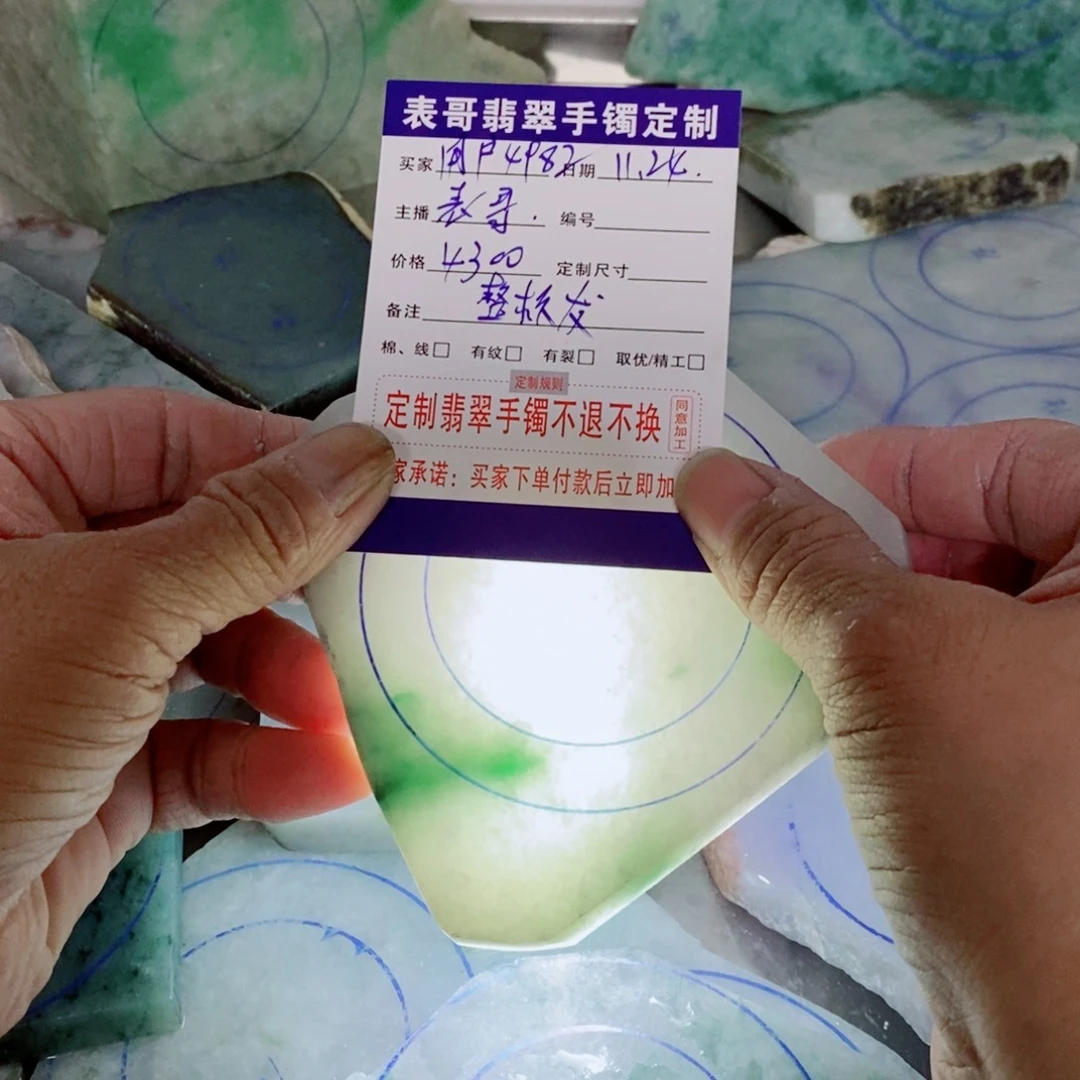 表哥翡翠手镯定制
买家 用户4982 日期 11.24.
主播 表哥. 编号
价格 4300 定制尺寸
备注 整板发
棉、线□ 有纹□ 有裂□ 取优/精工□
定制规则
定制翡翠手镯不退不换 同意加工
家承诺：买家下单付款后立即加